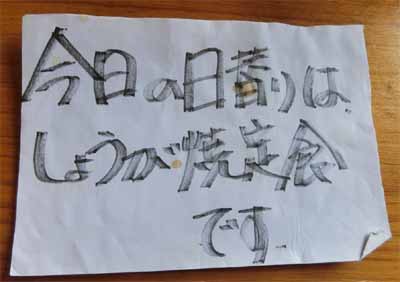 今日の日替りは、
しょうが焼定食
です